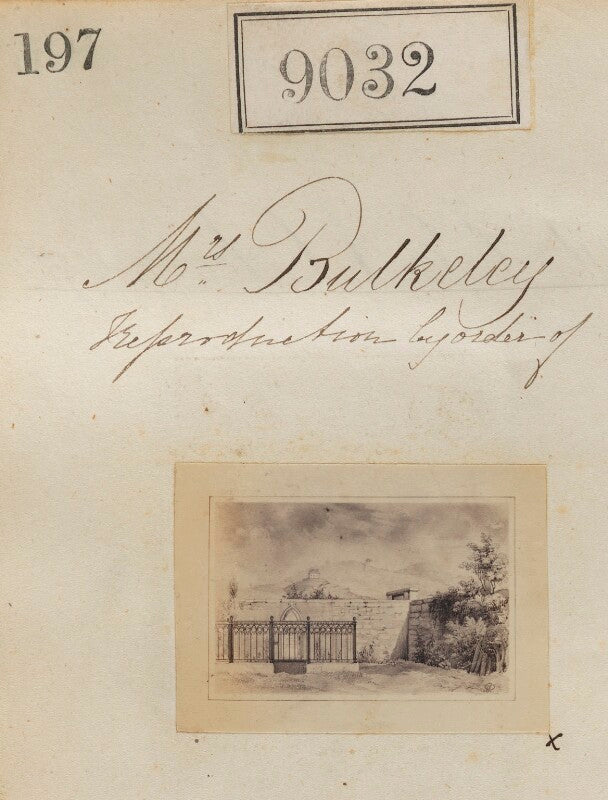 197
9032
Mrs Bulkeley
Reproduction by order of
x